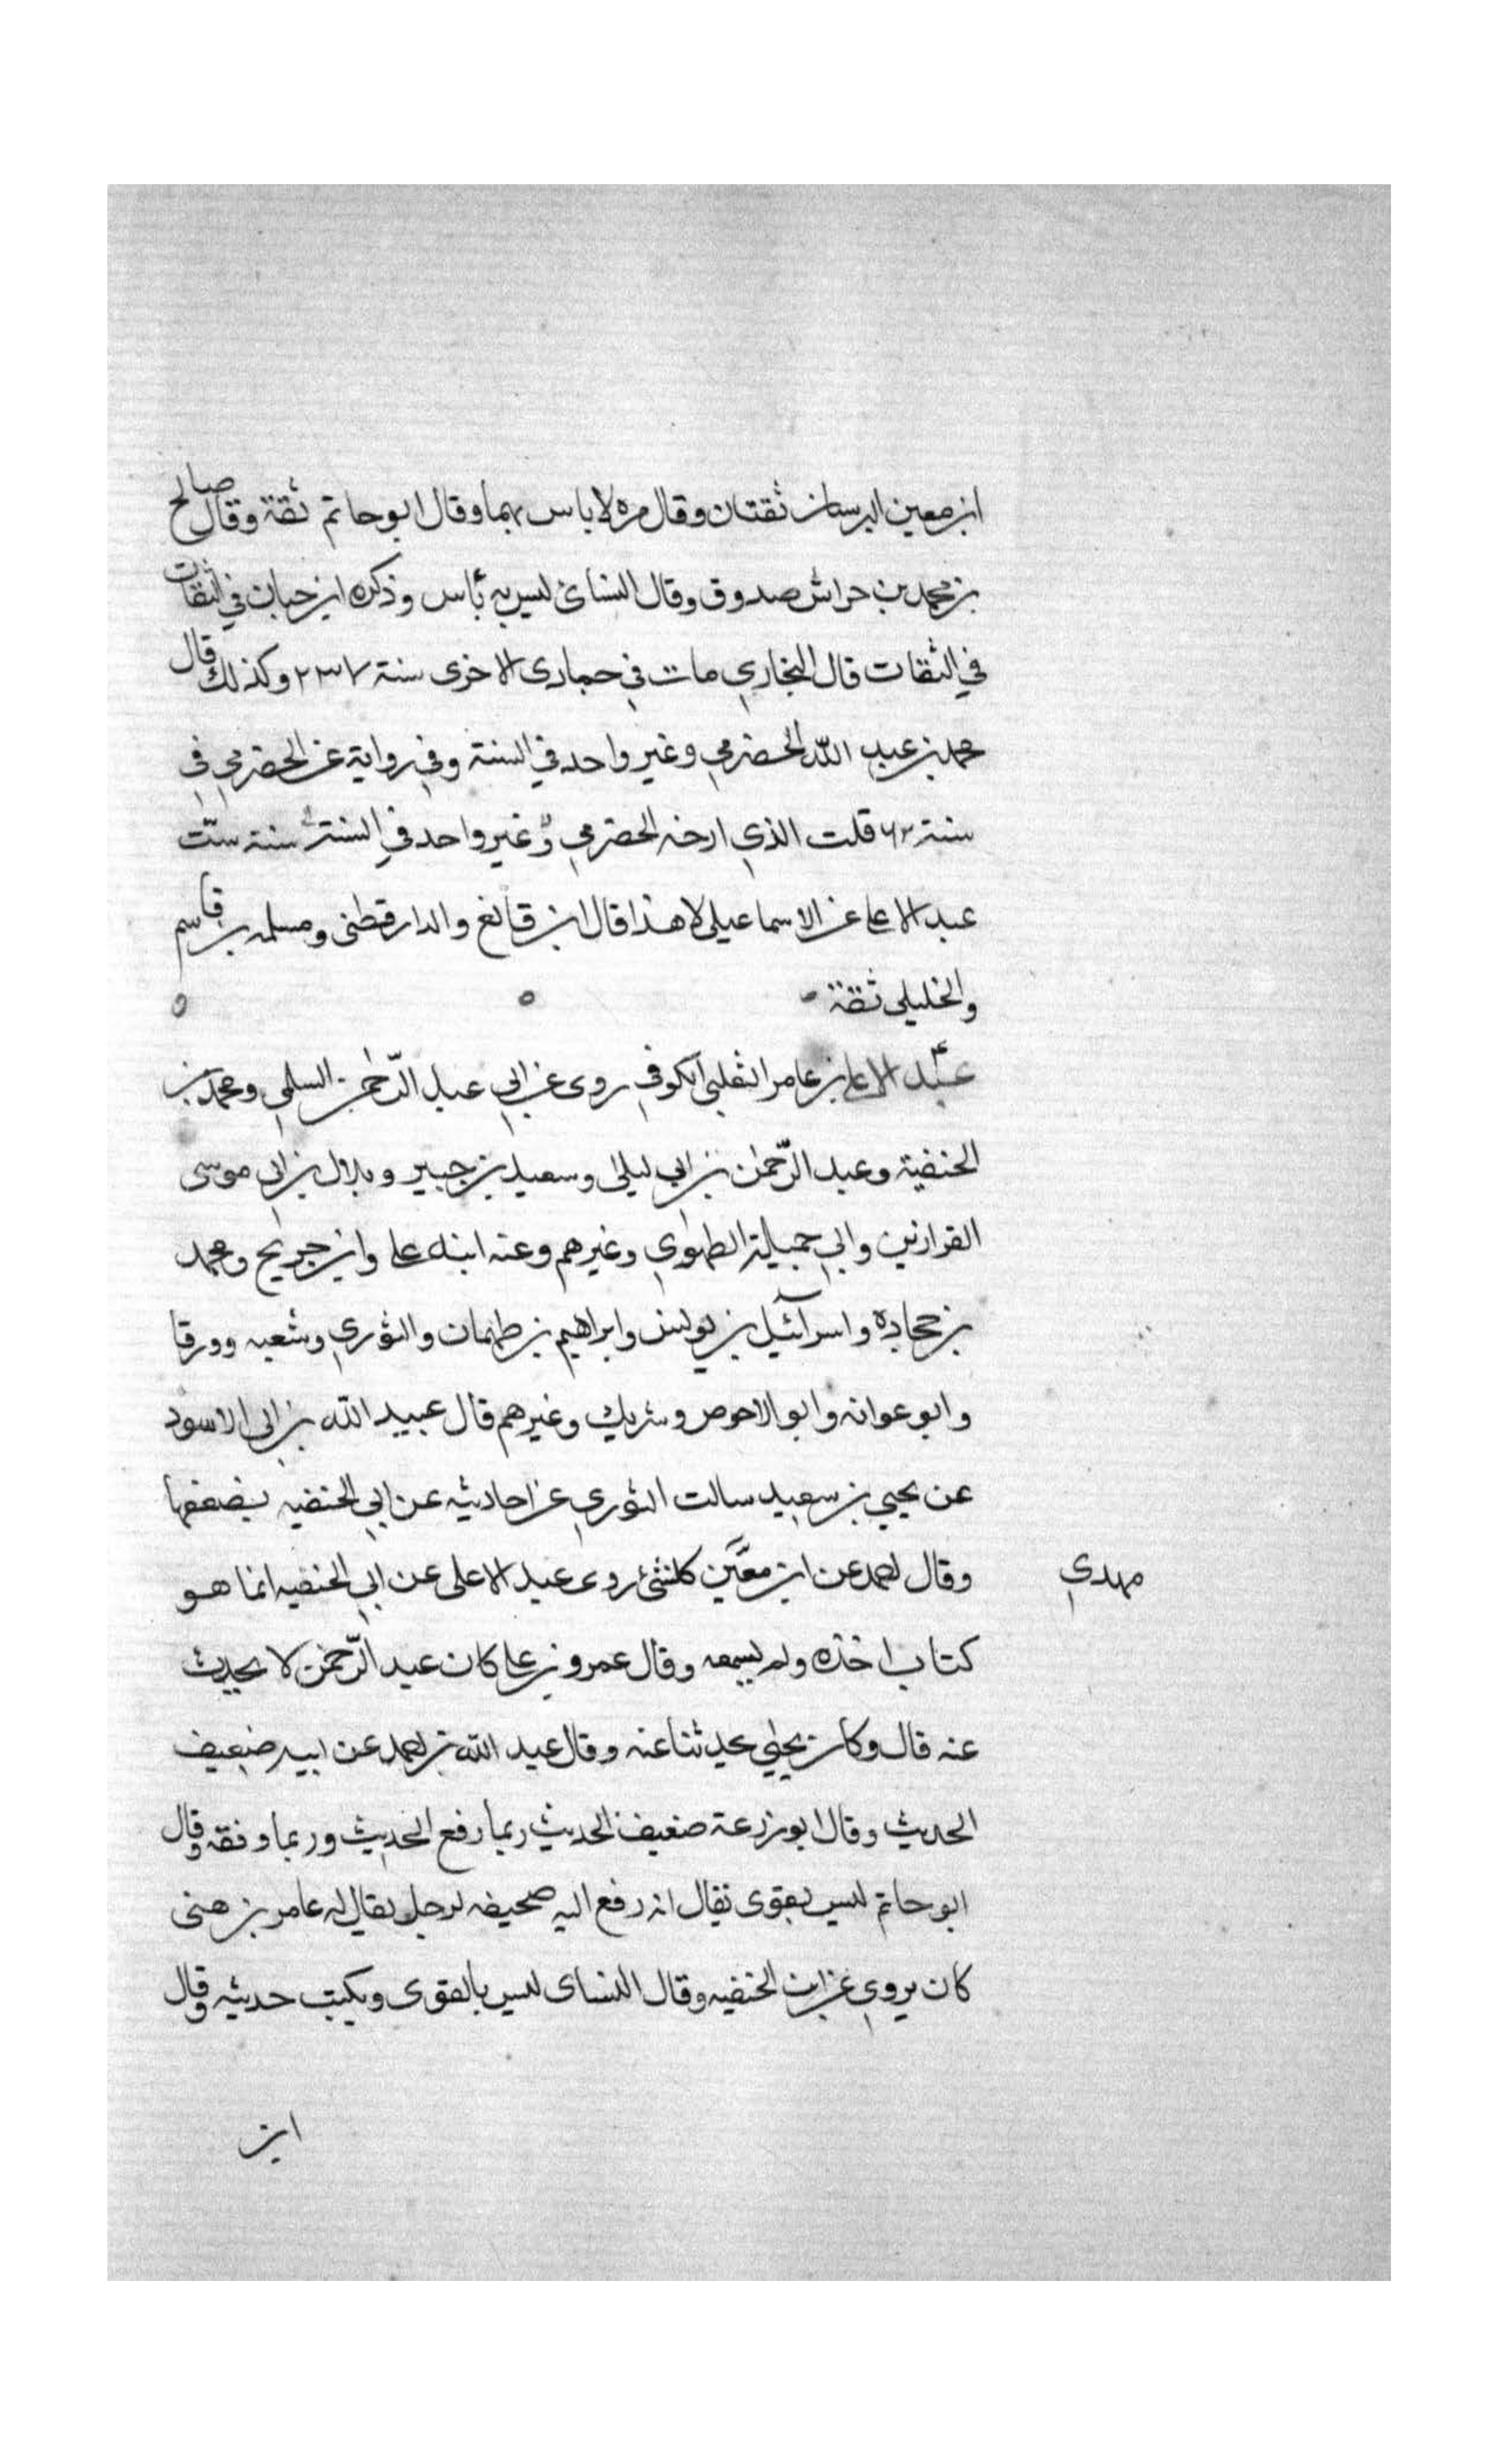 ابن معين النرسيان ثقتان وقال مره لا باس بهما وقال ابو حاتم ثقة وقال صالح
بن محمد بن خراش صدوق وقال النسائ ليس به بأس وذكره ابن حبان في الثقات
في الثقات قال البخاري مات في جمادى الاخرى سنة ٢٣٧ وكذلك قال
محمد بن عبد الله الحضرمي وغير واحد في السنة وفي رواية عن الحضرمي في
سنة قلت الذي ارخه الحضرمي وغير واحد في السنة سنة ستّ
عبد الاعلى عن الاسماعيلى لا هذا قال ابن قانع والدارقطنى ومسلمه بن قاسم
والخليلى ثقة
عبد الاعلى بن عامر الثعلبي الكوفي روى عن ابي عبد الرّحمن السلمي ومحمد بن
الحنفية وعبد الرّحمٰن بن ابي ليلى وسعيد بن جبير وبلال بن ابي موسى
الفزارىىن وابي جميلة الطهوي وغيرهم وعنه ابنه على وابن جريح ومحمد
بن حجادة واسرآئيل بن يونس وابراهيم بن طهمان والثوري وشعبه وورقا
وابو عوانه وابو الاحوص وشريك وغيرهم قال عبيد الله بن ابي الاسود
عن يحيي بن سعيد سالت الثوري عن احاديثه عن ابي الحنفيه بضعفها
وقال احمد عن ابن معين كل شئ روى عبد الاعلى عن ابي الحنفيه انما هو
مهدي
كتاب اخذه ولم يسمعه وقال عمرو بن على كان عبد الرّحمن لا يحدث
عنه قال وكان يحيي يحدثنا عنه وقال عبد الله بن احمد عن ابيه ضعيف
الحديث وقال ابو زرعة ضعيف الحديث ربما رفع الحديث وربما وفقه وقال
ابو حاتم ليس بقوى يقال انه رفع اليه صحيفه لرجل يقال له عامر بن هنى
كان يروي عن ابن الحنفيه وقال النساى ليس بالقوى ويكتب حديثه وقال
ابن